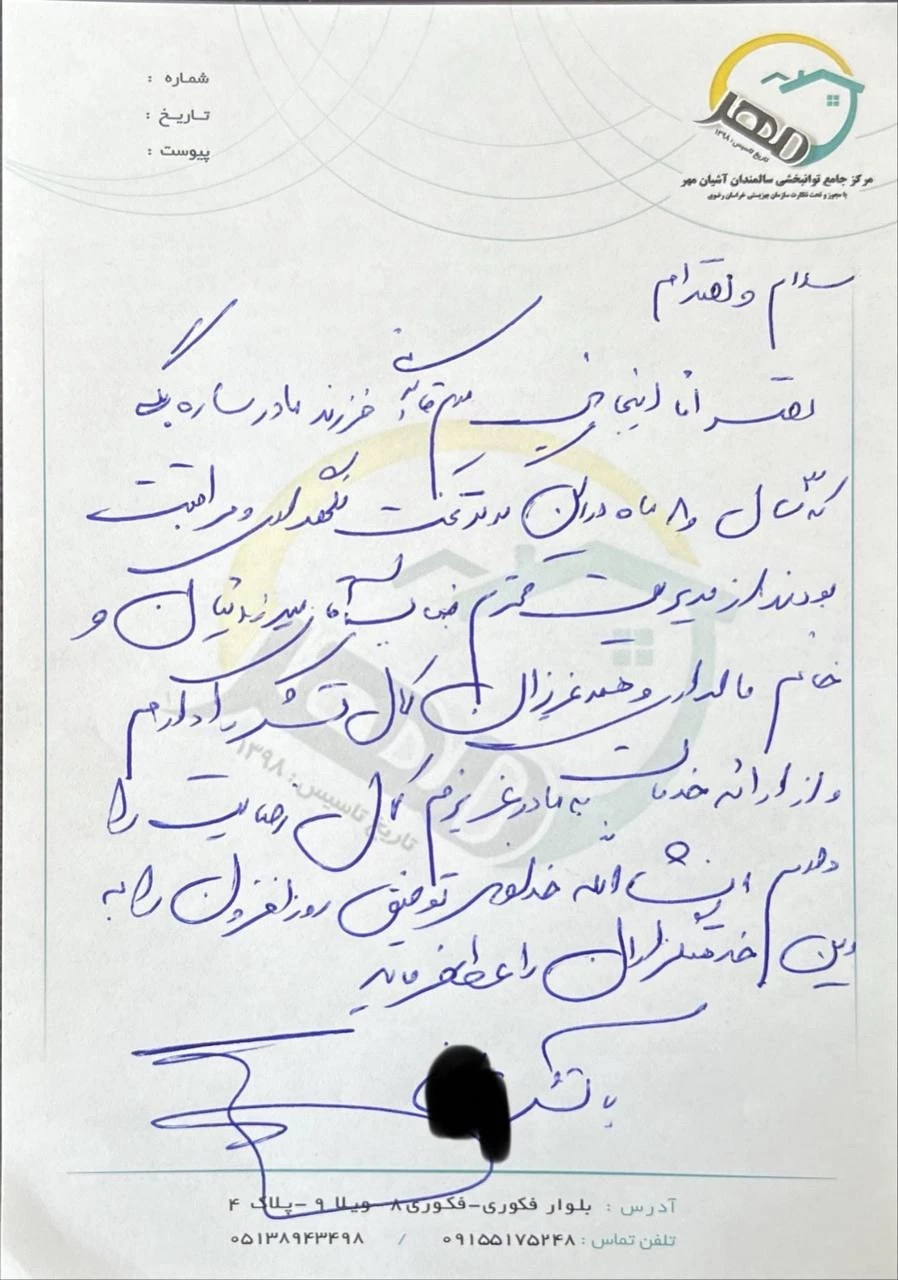 شماره :
تاریخ :
پیوست :
مهر
تاریخ تاسیس : ۱۳۹۸
مرکز جامع توانبخشی سالمندان آشیان مهر
با مجوز و تحت نظارت سازمان بهزیستی خراسان رضوی
سلام و احترام
احتراماً اینجانب مریم فرزند مادر ساره
که ۳ سال و ۸ ماه در این مرکز تحت نگهداری و مراقبت
بودند از مدیریت محترم جناب آقای میرزائیان و
خانم مالداری و همه عزیزان کمال تشکر را دارم
و از ارائه خدمات به مادر عزیزم کمال رضایت را
دارم انشاالله خداوند توفیق روزافزون را به
این خدمتگزاران را عطا فرماید
با تشکر
مهر
تاریخ تاسیس : ۱۳۹۸
آدرس : بلوار فکوری-فکوری ۸ ویلا ۹ -پلاک ۴
تلفن تماس : ۰۹۱۵۵۱۷۵۲۴۸ / ۰۵۱۳۸۹۴۳۴۹۸